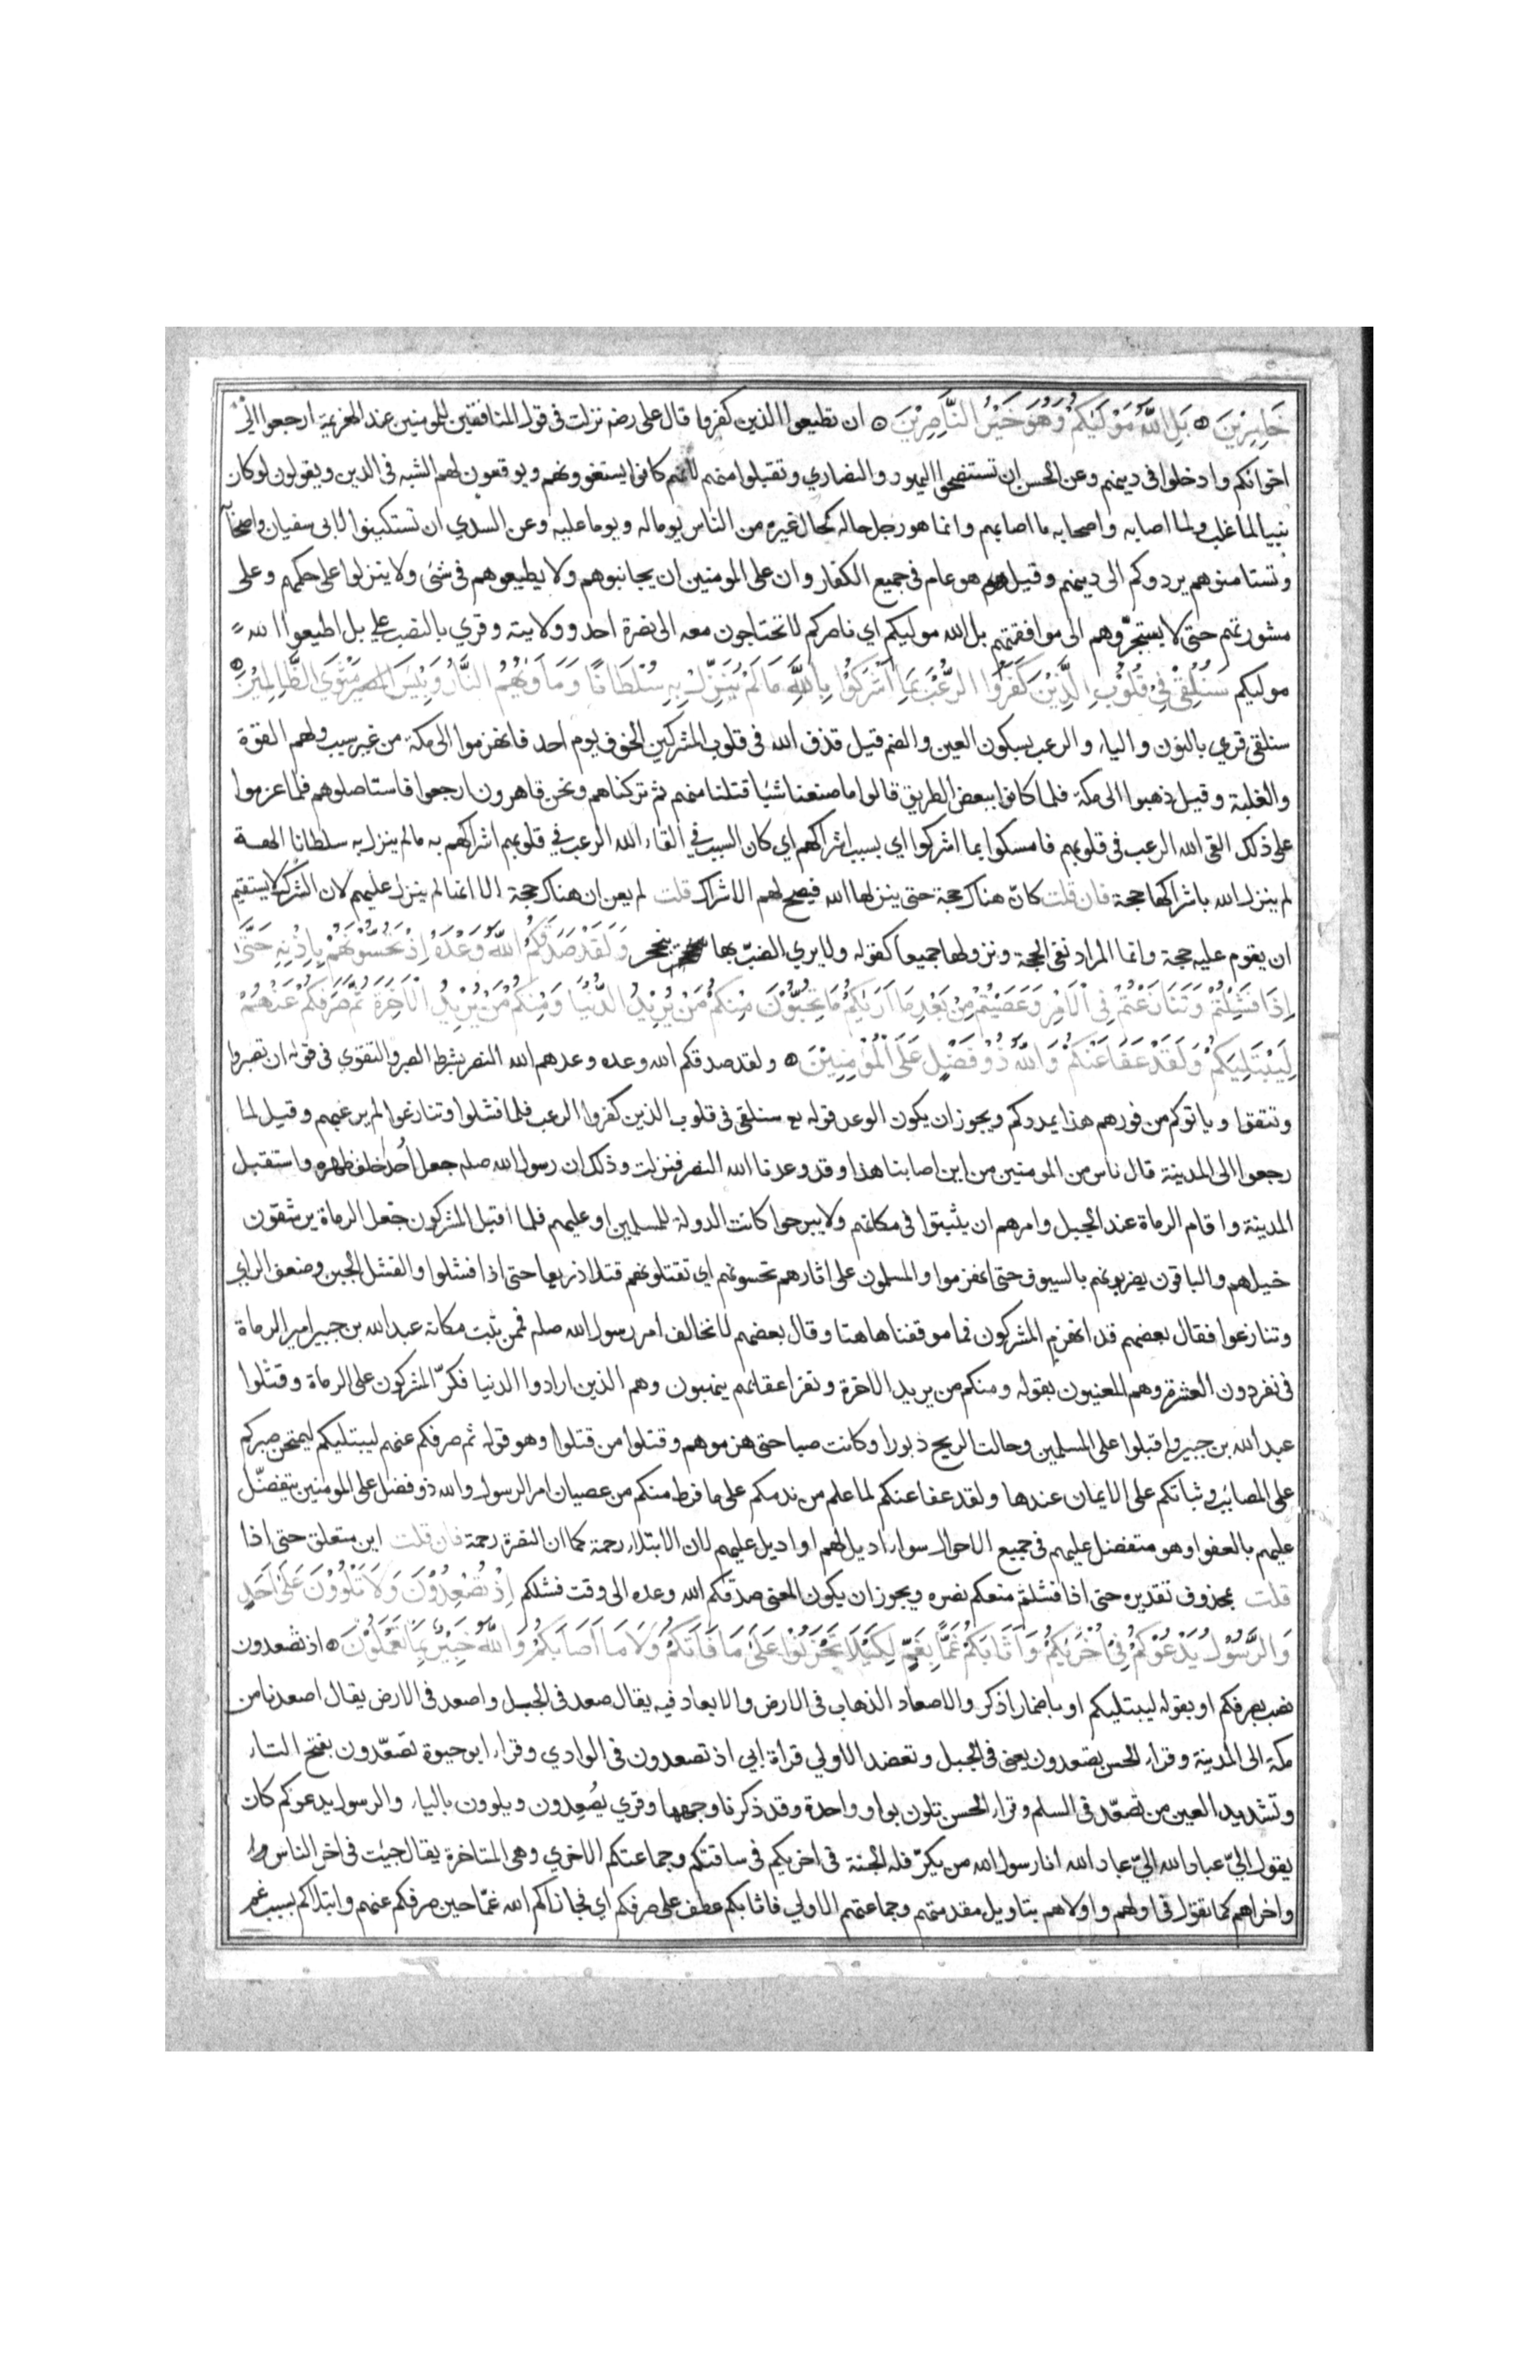 خَاسِرِيْنَ ۝ بَلِ اللّٰهُ مَوْلٰيكُمْ وَهُوَ خَيْرُ النَّاصِرِيْنَ ۝ ان تطيعوا الذين كفروا قال على رضه نزلت فى قول المنافقين للمومنين عند الهزيمة ارجعوا الى
اخوانكم وادخلوا فى دينهم وعن الحسن ان تستنصحوا اليهود والنصاري وتقبلوا منهم لانهم كانوا يستغوونهم ويوقعون لهم الشبه فى الدين ويقولون لوكان
نبيا لما غلب ولما اصابه واصحابه ما اصابهم وانما هو رجل حاله كحال غيره من الناس يوما له ويوما عليه وعن السدي ان تستكينوا لابى سفيان واصحابه
وتستامنوهم يردوكم الى دينهم وقيل هو عام فى جميع الكفار وان على المومنين ان يجانبوهم ولا يطيعوهم فى شئ ولا ينزلوا على حكمهم وعلى
مشورتهم حتى لا يستجرّوهم الى موافقتهم بل الله موليكم اي ناصركم لا تحتاجون معه الى نصرة احد وولايته وقري بالنصب على بل اطيعوا الله
موليكم سَنُلْقِيْ فِيْ قُلُوْبِ الَّذِيْنَ كَفَرُوا الرُّعْبَ بِمَا اَشْرَكُوْا بِاللّٰهِ مَا لَمْ يُنَزِّلْ بِهِ سُلْطَانًا وَمَأوٰيهُمُ النَّارُ وَبِئْسَ المصير مَثْوَي الظَّالِمِيْنَ ۝
سنلقى قري بالنون والياء والرعب بسكون العين والضم قيل قذف الله فى قلوب المشركين الخوف يوم احد فانهزموا الى مكة من غير سبب ولهم القوة
والغلبة وقيل ذهبوا الى مكة فلما كانوا ببعض الطريق قالوا ما صنعنا شيا قتلنا منهم ثم تركناهم ونحن قاهرون ارجعوا فاستاصلوهم فلما عزموا
على ذلك القى الله الرعب فى قلوبهم فامسكوا بما اشركوا اي بسبب اشراكهم اي كان السبب في القاء الله الرعب في قلوبهم اشراكهم به مالم ينزل به سلطانا الهة
لم ينزل الله باشراكها حجة فان قلت كانّ هناك حجة حتى ينزلها الله فيصح لهم الاشراك قلت لم يعن ان هناك حجة الا انها لم ينزل عليهم لان الشرك لا يستقيم
ان يقوم عليه حجة وانما المراد نفى الحجة ونزولها جميعا كقوله ولا يري الضبّ بها ينجحر وَلَقَدْ صَدَقَكُمُ اللّٰهُ وَعْدَهُ اِذْ تَحُسُّوْنَهُمْ بِاِذْنِهِ حَتَّى
اِذَا فَشِلْتُمْ وَتَنَازَعْتُمْ فِى الْاَمْرِ وَعَصَيْتُمْ مِنْ بَعْدِ مَا اَرٰيكُمْ مَا تُحِبُّوْنَ مِنْكُمْ مَنْ يُرِيْدُ الدُّنْيَا وَمِنْكُمْ مَنْ يُرِيْدُ الْاٰخِرَةَ ثُمَّ صَرَفَكُمْ عَنْهُمْ
لِيَبْتَلِيَكُمْ وَلَقَدْ عَفَا عَنْكُمْ وَاللّٰهُ ذُوْ فَضْلٍ عَلَى الْمُؤْمِنِيْنَ ۝ ولقد صدقكم الله وعده وعدهم الله النصر بشرط الصبر والتقوي فى قوله ان تصبروا
وتتقوا وياتوكم من فورهم هذا يمددكم ويجوز ان يكون الوعد قوله تع سنلقى فى قلوب الذين كفروا الرعب فلما فشلوا وتنازعوا لم يرعبهم وقيل لما
رجعوا الى المدينة قال ناس من المومنين من اين اصابنا هذا وقد وعدنا الله النصر فنزلت وذلك ان رسول الله صلم جعل اُحدا خلف ظهره واستقبل
المدينة واقام الرماة عند الجبل وامرهم ان يثبتوا فى مكانهم ولا يبرحوا كانت الدولة للمسلمين او عليهم فلما اقبل المشركون جعل الرماة يرشقون
خيلهم والباقون يضربونهم بالسيوف حتى انهزموا والمسلمون على اثارهم تحسونهم اي تقتلونهم قتلا ذريعا حتى اذا فشلوا والفشل الجبن وضعف الراي
وتنازعوا فقال بعضهم قد انهزم المشركون فما موقفنا هاهنا وقال بعضهم لا نخالف امر رسول الله صلم فممن ثبت مكانه عبد الله بن جبير امير الرماة
فى نفر دون العشرة وهم المعنيون بقوله ومنكم من يريد الاخرة ونفر اعقابهم ينهبون وهم الذين ارادوا الدنيا فكرّ المشركون على الرماة وقتلوا
عبد الله بن جبير واقبلوا على المسلمين وحالت الريح دبورا وكانت صبا حتى هزموهم وقتلوا من قتلوا وهو قوله ثم صرفكم عنهم ليبتليكم ليمتحن صبركم
على المصائب وثباتكم على الايمان عندها ولقد عفا عنكم لما علم من ندمكم على ما فرط منكم من عصيان امر الرسول والله ذو فضل على المومنين يتفضّل
عليهم بالعفو او هو متفضل عليهم فى جميع الاحوال سواء اديل لهم او اديل عليهم لان الابتلاء رحمة كما ان النصرة رحمة فان قلت اين متعلق حتى اذا
قلت بمحذوف تقديره حتى اذا فشلتم منعكم نصره ويجوز ان يكون المعنى صدقكم الله وعده الى وقت فشلكم اِذْ تُصْعِدُوْنَ وَلَا تَلْوُوْنَ عَلٰى اَحَدٍ
وَالرَّسُوْلُ يَدْعُوْكُمْ فِيْ اُخْرٰيكُمْ وَاَثَابَكُمْ غَمًّا بِغَمٍّ لِكَيْلَا تَحْزَنُوْا عَلٰى مَا فَاتَكُمْ وَلَا مَا اَصَابَكُمْ وَاللّٰهُ خَبِيْرٌ بِمَا تَعْمَلُوْنَ ۝ اذ تصعدون
نصب بصرفكم او بقوله ليبتليكم او باضمار اذكر والاصعاد الذهاب فى الارض والابعاد فيه يقال صعد فى الجبل واصعد فى الارض يقال اصعدنا من
مكة الى المدينة وقراء الحسن تصعدون يعنى فى الجبل وتعضد الاولي قراة ابي اذ تصعدون فى الوادي وقراء ابو حيوة تصّعّدون بفتح التاء
وتشديد العين من تصعّد فى السلم وقراء الحسن تلون بواو واحدة وقد ذكرنا وجهها وقري يُصْعِدون ويلوون بالياء والرسول يدعوكم كان
يقول اليّ عباد الله اليّ عباد الله انا رسول الله من يكرّ فله الجنة فى اخريكم فى ساقتكم وجماعتكم الاخري وهى المتاخرة يقال جئت فى اخر الناس
واخراهم كما تقول فى اولهم واولاهم بتاويل مقدمتهم وجماعتهم الاولي فاثابكم عطف على صرفكم اي فجازاكم الله غمّا حين صرفكم عنهم وابتلاكم بسبب غم